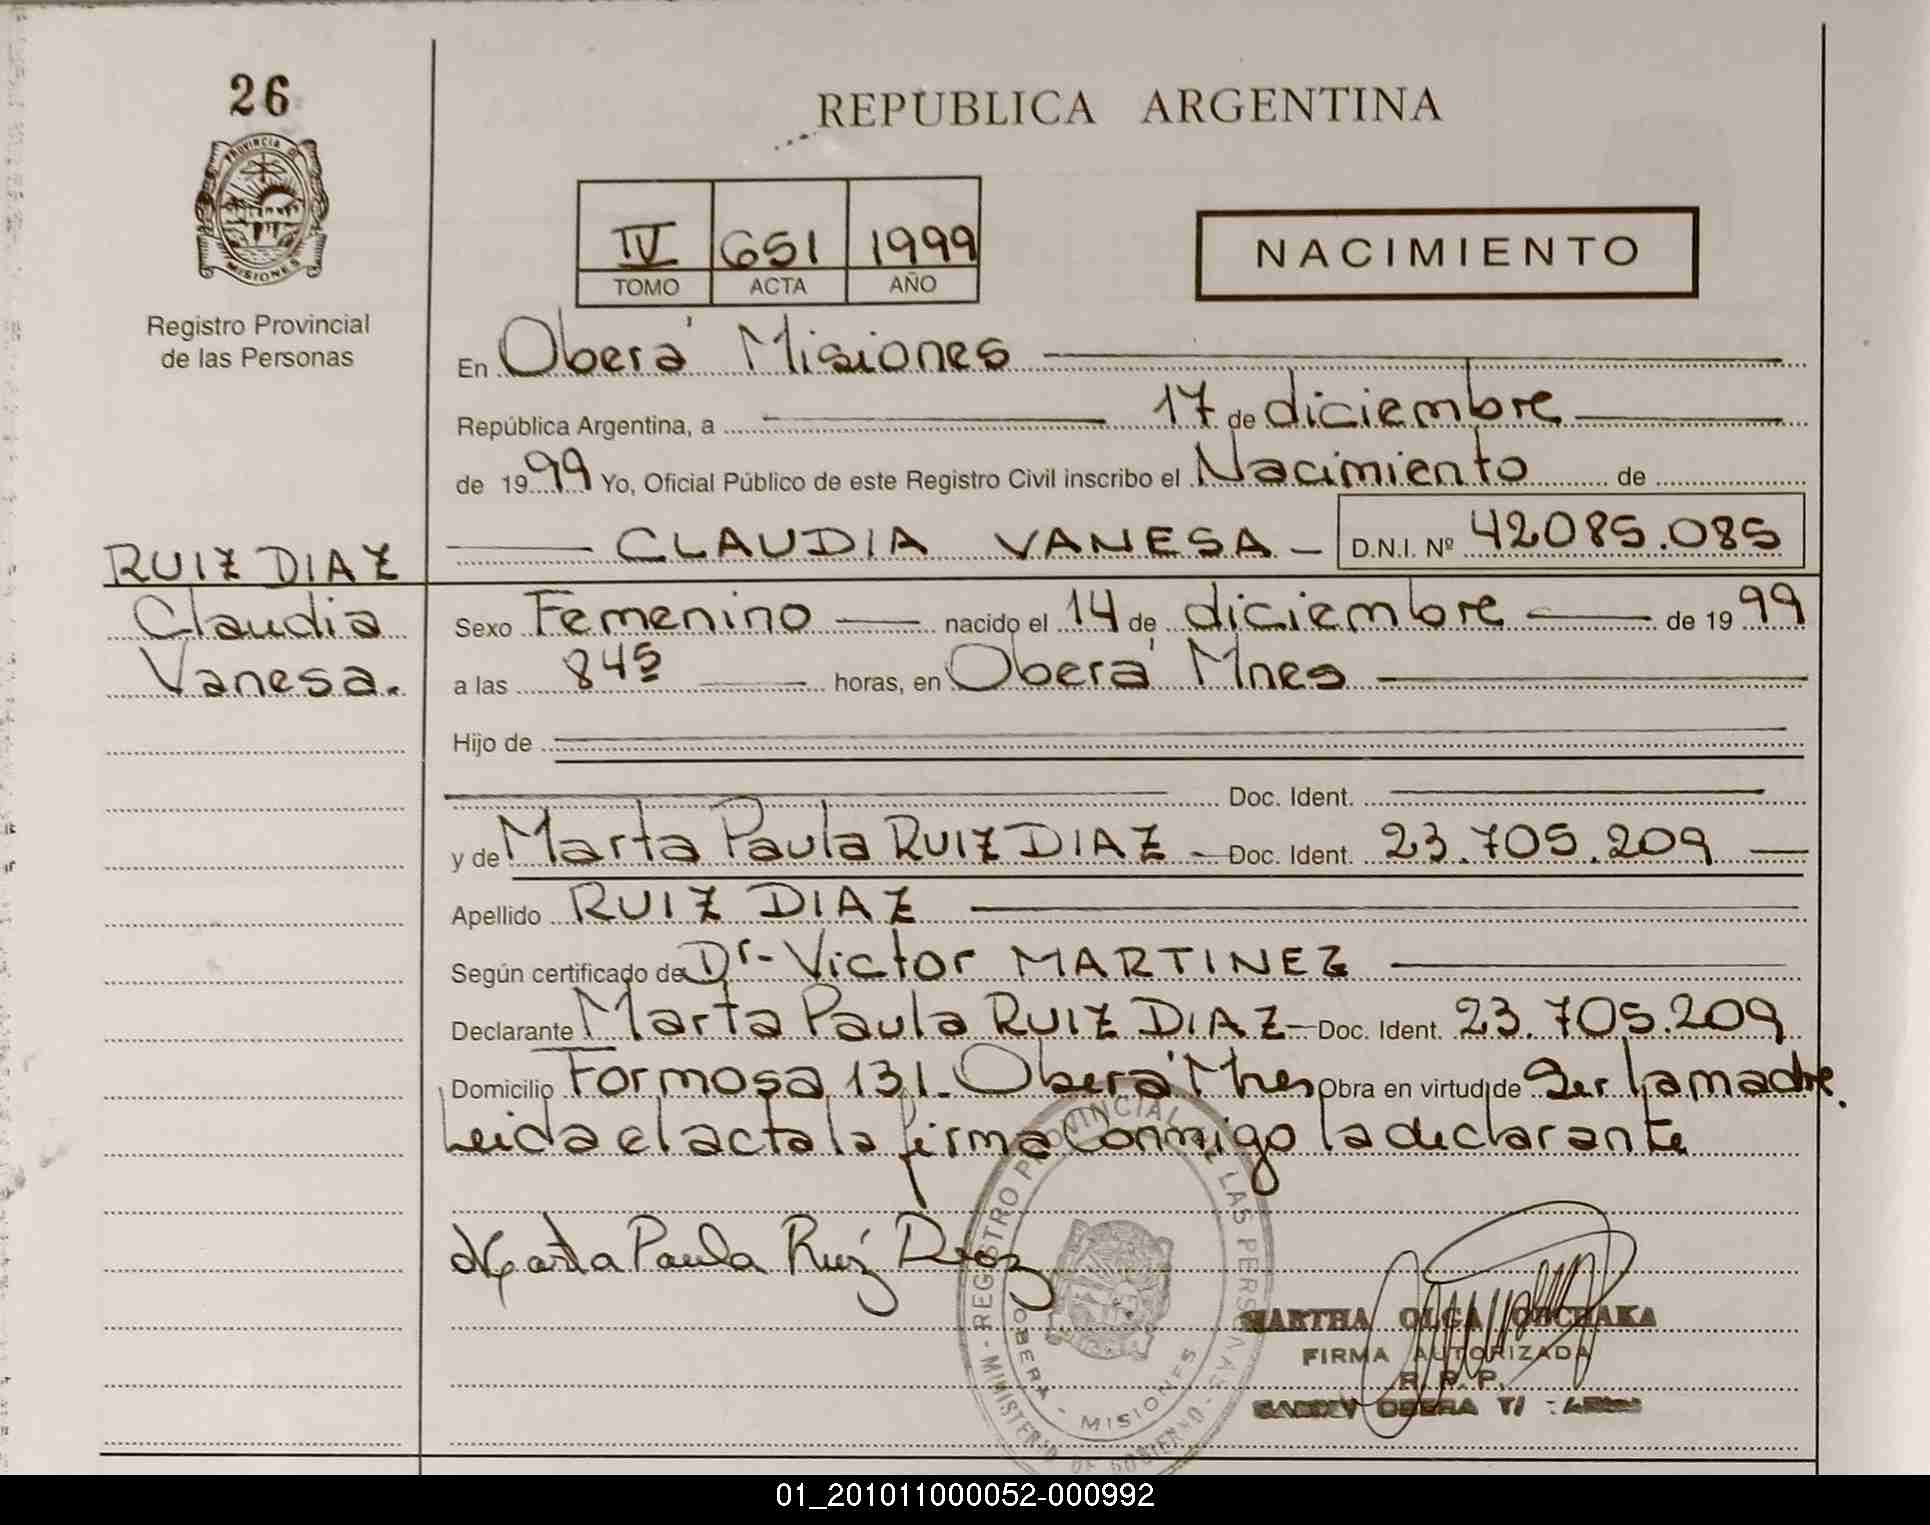 26
REPUBLICA ARGENTINA
PROVINCIA DE
MISIONES
Registro Provincial
de las Personas
IV 651 1999
TOMO ACTA AÑO
NACIMIENTO
En Oberá Misiones
República Argentina, a 17 de diciembre
de 1999 Yo, Oficial Público de este Registro Civil inscribo el Nacimiento de
CLAUDIA VANESA D.N.I. Nº 42085.085
RUIZ DIAZ
Claudia
Vanesa.
Sexo Femenino nacido el 14 de diciembre de 1999
a las 845 horas, en Oberá Mnes
Hijo de
Doc. Ident.
y de Marta Paula RUIZ DIAZ - Doc. Ident. 23.705.209
Apellido RUIZ DIAZ
Según certificado de Dr- Victor MARTINEZ
Declarante Marta Paula RUIZ DIAZ - Doc. Ident. 23.705.209
Domicilio Formosa 131. Oberá Mnes Obra en virtud de Ser la madre.
Leida el acta la firma Conmigo la declarante
Marta Paula Ruiz Diaz
REGISTRO PROVINCIAL DE LAS PERSONAS
OBERA - MISIONES
MINISTERIO DE GOBIERNO
MARTHA OLGA
FIRMA AUTORIZADA
R. P. P.
OBERA
01_201011000052-000992